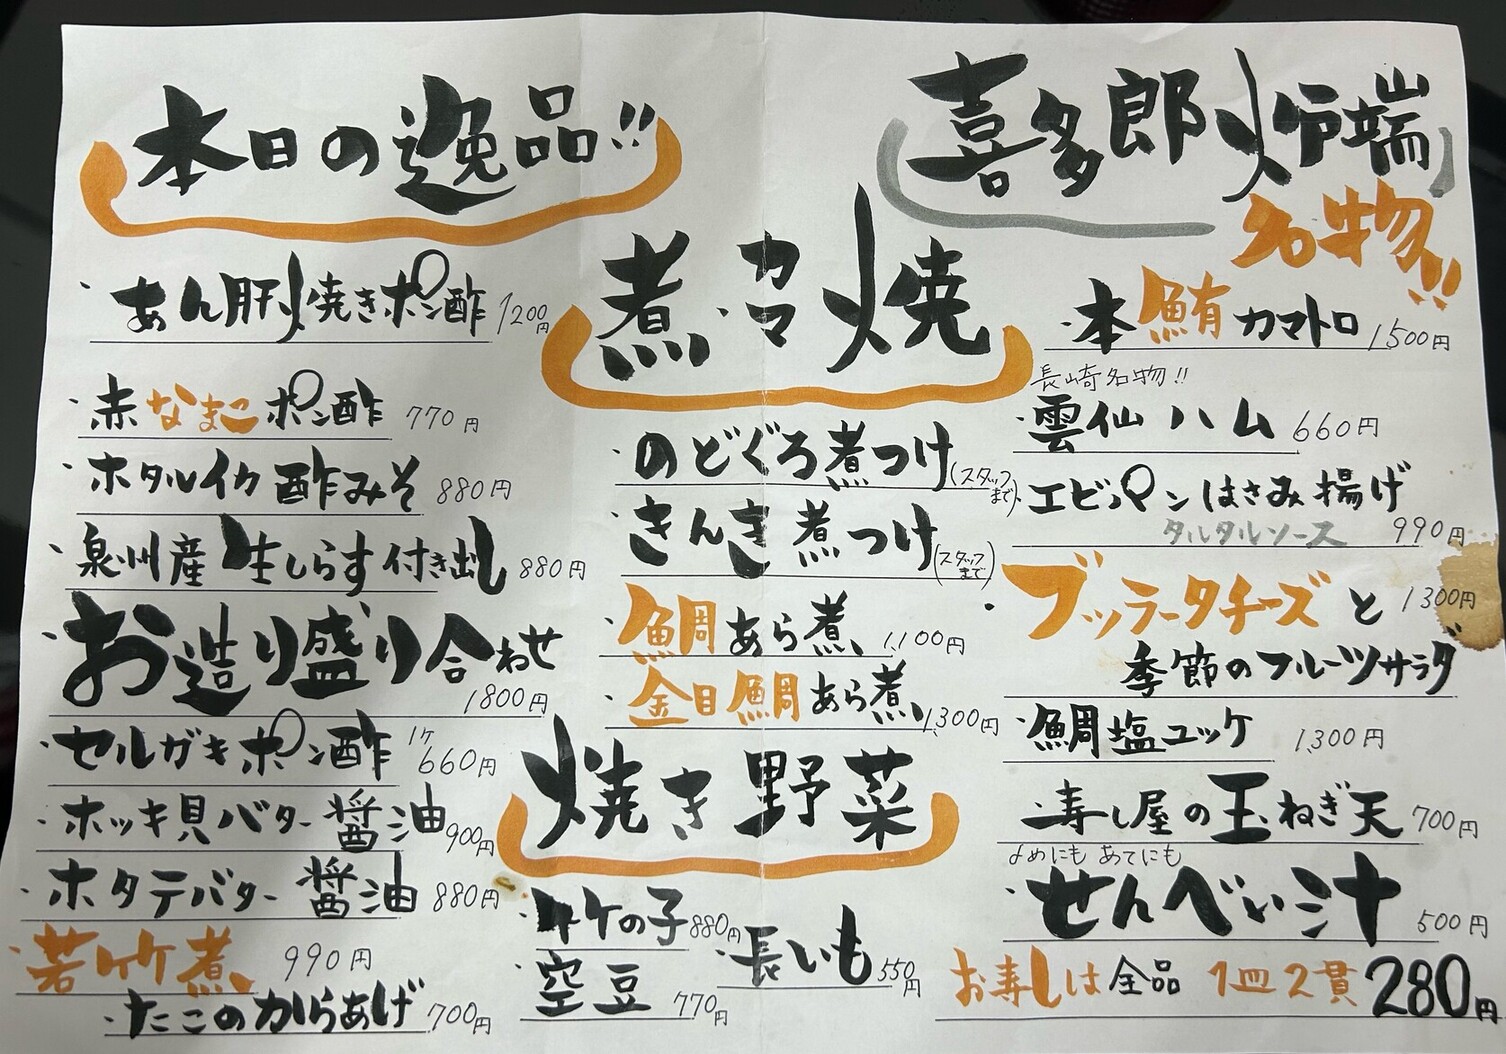 本日の逸品!!
・あん肝焼きポン酢 1200円
・赤なまこポン酢 770円
・ホタルイカ酢みそ 880円
・泉州産生しらす付き出し 880円
・お造り盛り合わせ 1800円
・セルガキポン酢 1ケ 660円
・ホッキ貝バター醤油 900円
・ホタテバター醤油 880円
・若竹煮 990円
・たこのからあげ 700円
煮・カマ焼
・のどぐろ煮つけ(スタッフまで)
・きんき煮つけ(スタッフまで)
・鯛あら煮 1,100円
・金目鯛あら煮 1,300円
焼き野菜
・竹の子 880円
・空豆 770円
・長いも 550円
喜多郎炉端
名物!!
・本鮪カマトロ 1,500円
長崎名物!!
・雲仙ハム 660円
・エビパンはさみ揚げ
タルタルソース 990円
・ブッラータチーズと 1300円
季節のフルーツサラダ
・鯛塩ユッケ 1,300円
・寿し屋の玉ねぎ天 700円
〆めにも あてにも
・せんべい汁 500円
お寿しは全品 1皿2貫 280円